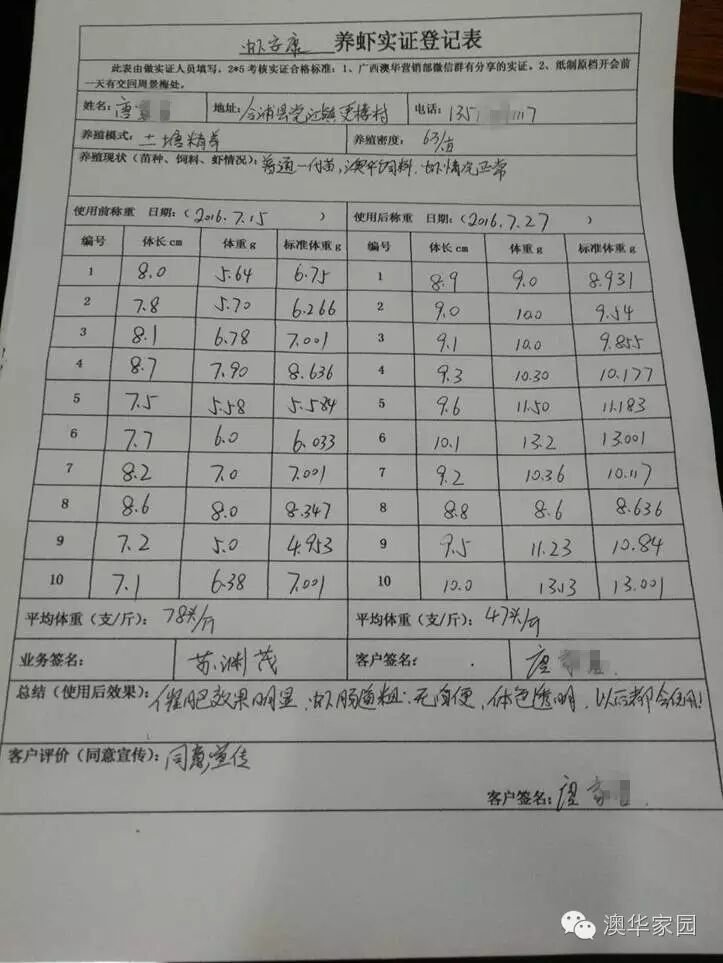 虾安康 养虾实证登记表
此表由做实证人员填写，2*5考核实证合格标准：1、广西澳华营销部微信群有分享的实证。2、纸制原档开会前
一天有交回周景梅处。
姓名：唐 地址：合浦县党江镇更楼村 电话：135 117
养殖模式：土塘精养 养殖密度：6万/亩
养殖现状（苗种、饲料、虾情况）：普通一代苗，澳华饲料，虾情况正常
使用前称重 日期：（2016.7.15） 使用后称重 日期：（2016.7.27）
编号 体长cm 体重g 标准体重g 编号 体长cm 体重g 标准体重g
1 8.0 5.64 6.75 1 8.9 9.0 8.931
2 7.8 5.70 6.266 2 9.0 10.0 9.54
3 8.1 6.78 7.001 3 9.1 10.0 9.855
4 8.7 7.90 8.636 4 9.3 10.30 10.177
5 7.5 5.58 5.584 5 9.6 11.50 11.183
6 7.7 6.0 6.033 6 10.1 13.2 13.001
7 8.2 7.0 7.001 7 9.2 10.36 10.117
8 8.6 8.0 8.347 8 8.8 8.6 8.636
9 7.2 5.0 4.953 9 9.5 11.23 10.84
10 7.1 6.38 7.001 10 10.0 13.13 13.001
平均体重（支/斤）：78头/斤 平均体重（支/斤）：47头/斤
业务签名：苏渊茂 客户签名：唐
总结（使用后效果）：催肥效果明显，虾肠道粗，无白便，体色透明，以后都会使用！
客户评价（同意宣传）：同意宣传
客户签名：唐
澳华家园